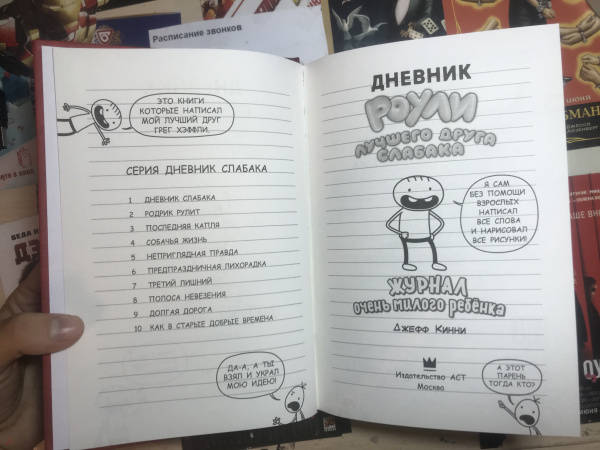 Расписание звонков
ЭТО КНИГИ
КОТОРЫЕ НАПИСАЛ
МОЙ ЛУЧШИЙ ДРУГ
ГРЕГ ХЭФФЛИ.
СЕРИЯ ДНЕВНИК СЛАБАКА
1 ДНЕВНИК СЛАБАКА
2 РОДРИК РУЛИТ
3 ПОСЛЕДНЯЯ КАПЛЯ
4 СОБАЧЬЯ ЖИЗНЬ
5 НЕПРИГЛЯДНАЯ ПРАВДА
6 ПРЕДПРАЗДНИЧНАЯ ЛИХОРАДКА
7 ТРЕТИЙ ЛИШНИЙ
8 ПОЛОСА НЕВЕЗЕНИЯ
9 ДОЛГАЯ ДОРОГА
10 КАК В СТАРЫЕ ДОБРЫЕ ВРЕМЕНА
ДА-А, А ТЫ
ВЗЯЛ И УКРАЛ
МОЮ ИДЕЮ!
ДНЕВНИК
РОУЛИ
ЛУЧШЕГО ДРУГА
СЛАБАКА
Я САМ
БЕЗ ПОМОЩИ
ВЗРОСЛЫХ
НАПИСАЛ
ВСЕ СЛОВА
И НАРИСОВАЛ
ВСЕ РИСУНКИ!
ЖУРНАЛ
ОЧЕНЬ МИЛОГО РЕБЁНКА
ДЖЕФФ КИННИ
Издательство АСТ
Москва
А ЭТОТ
ПАРЕНЬ
ТОГДА КТО?